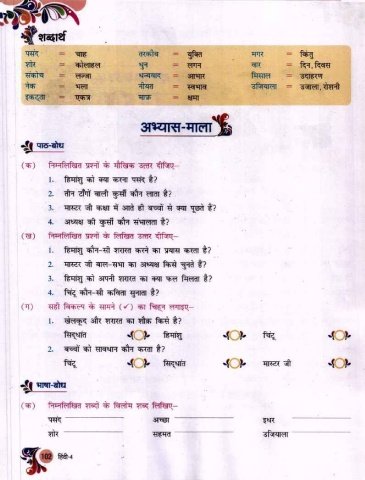 शब्दार्थ
पसंद = चाह तरकीब = युक्ति मगर = किंतु
शोर = कोलाहल धुन = लगन वार = दिन, दिवस
संकोच = लज्जा धन्यवाद = आभार मिसाल = उदाहरण
नेक = भला नीयत = स्वभाव उजियाला = उजाला, रोशनी
इकट्ठा = एकत्र माफ़ = क्षमा
अभ्यास-माला
पाठ-बोध
(क) निम्नलिखित प्रश्नों के मौखिक उत्तर दीजिए–
1. हिमांशु को क्या करना पसंद है?
2. तीन टाँगों वाली कुर्सी कौन लाता है?
3. मास्टर जी कक्षा में आते ही बच्चों से क्या पूछते हैं?
4. अध्यक्ष की कुर्सी कौन संभालता है?
(ख) निम्नलिखित प्रश्नों के लिखित उत्तर दीजिए–
1. हिमांशु कौन-सी शरारत करने का प्रयास करता है?
2. मास्टर जी बाल-सभा का अध्यक्ष किसे चुनते हैं?
3. हिमांशु को अपनी शरारत का क्या फल मिलता है?
4. चिंटू कौन-सी कविता सुनाता है?
(ग) सही विकल्प के सामने (✓) का चिह्न लगाइए–
1. खेलकूद और शरारत का शौक़ किसे है?
सिद्धांत हिमांशु चिंटू
2. बच्चों को सावधान कौन करता है?
चिंटू सिद्धांत मास्टर जी
भाषा-बोध
(क) निम्नलिखित शब्दों के विलोम शब्द लिखिए–
पसंद अच्छा इधर
शोर सहमत उजियाला
102 हिंदी-4